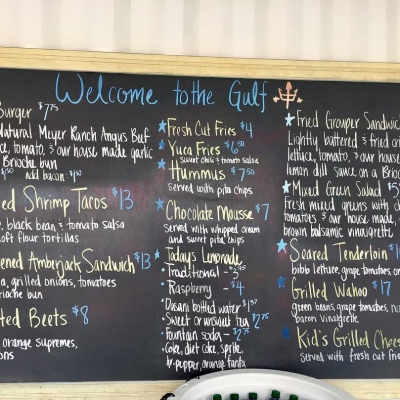 Welcome to the Gulf
Burger $7.75
Natural Meyer Ranch Angus Beef
tomato, & our house made garlic
Brioche bun
Add bacon
Shrimp Tacos $13
black bean & tomato salsa
soft flour tortillas
Amberjack Sandwich $13
grilled onions, tomatoes
brioche bun
Beets $8
orange supremes,
Fresh Cut Fries $4
Yuca Fries $6.50
sweet chili & tomato salsa
Hummus $7.50
served with pita chips
Chocolate Mousse $7
served with whipped cream
and sweet pita chips
Today's Lemonade
Traditional - 3.75
Raspberry - $4
Dasani bottled water $1.50
Sweet or unsweet tea $2.75
Fountain soda - $2.75
Coke, diet coke, sprite,
dr. pepper, orange fanta
Fried Grouper Sandwich
Lightly battered & fried
lettuce, tomato, & our house
lemon dill sauce on a Brioche
Mixed Green Salad
Fresh mixed greens with
tomatoes & our house made
brown balsamic vinaigrette
Seared Tenderloin
bibb lettuce, grape tomatoes
Grilled Wahoo $17
green beans, grape tomatoes,
bacon vinaigrette
Kid's Grilled Cheese
served with fresh cut